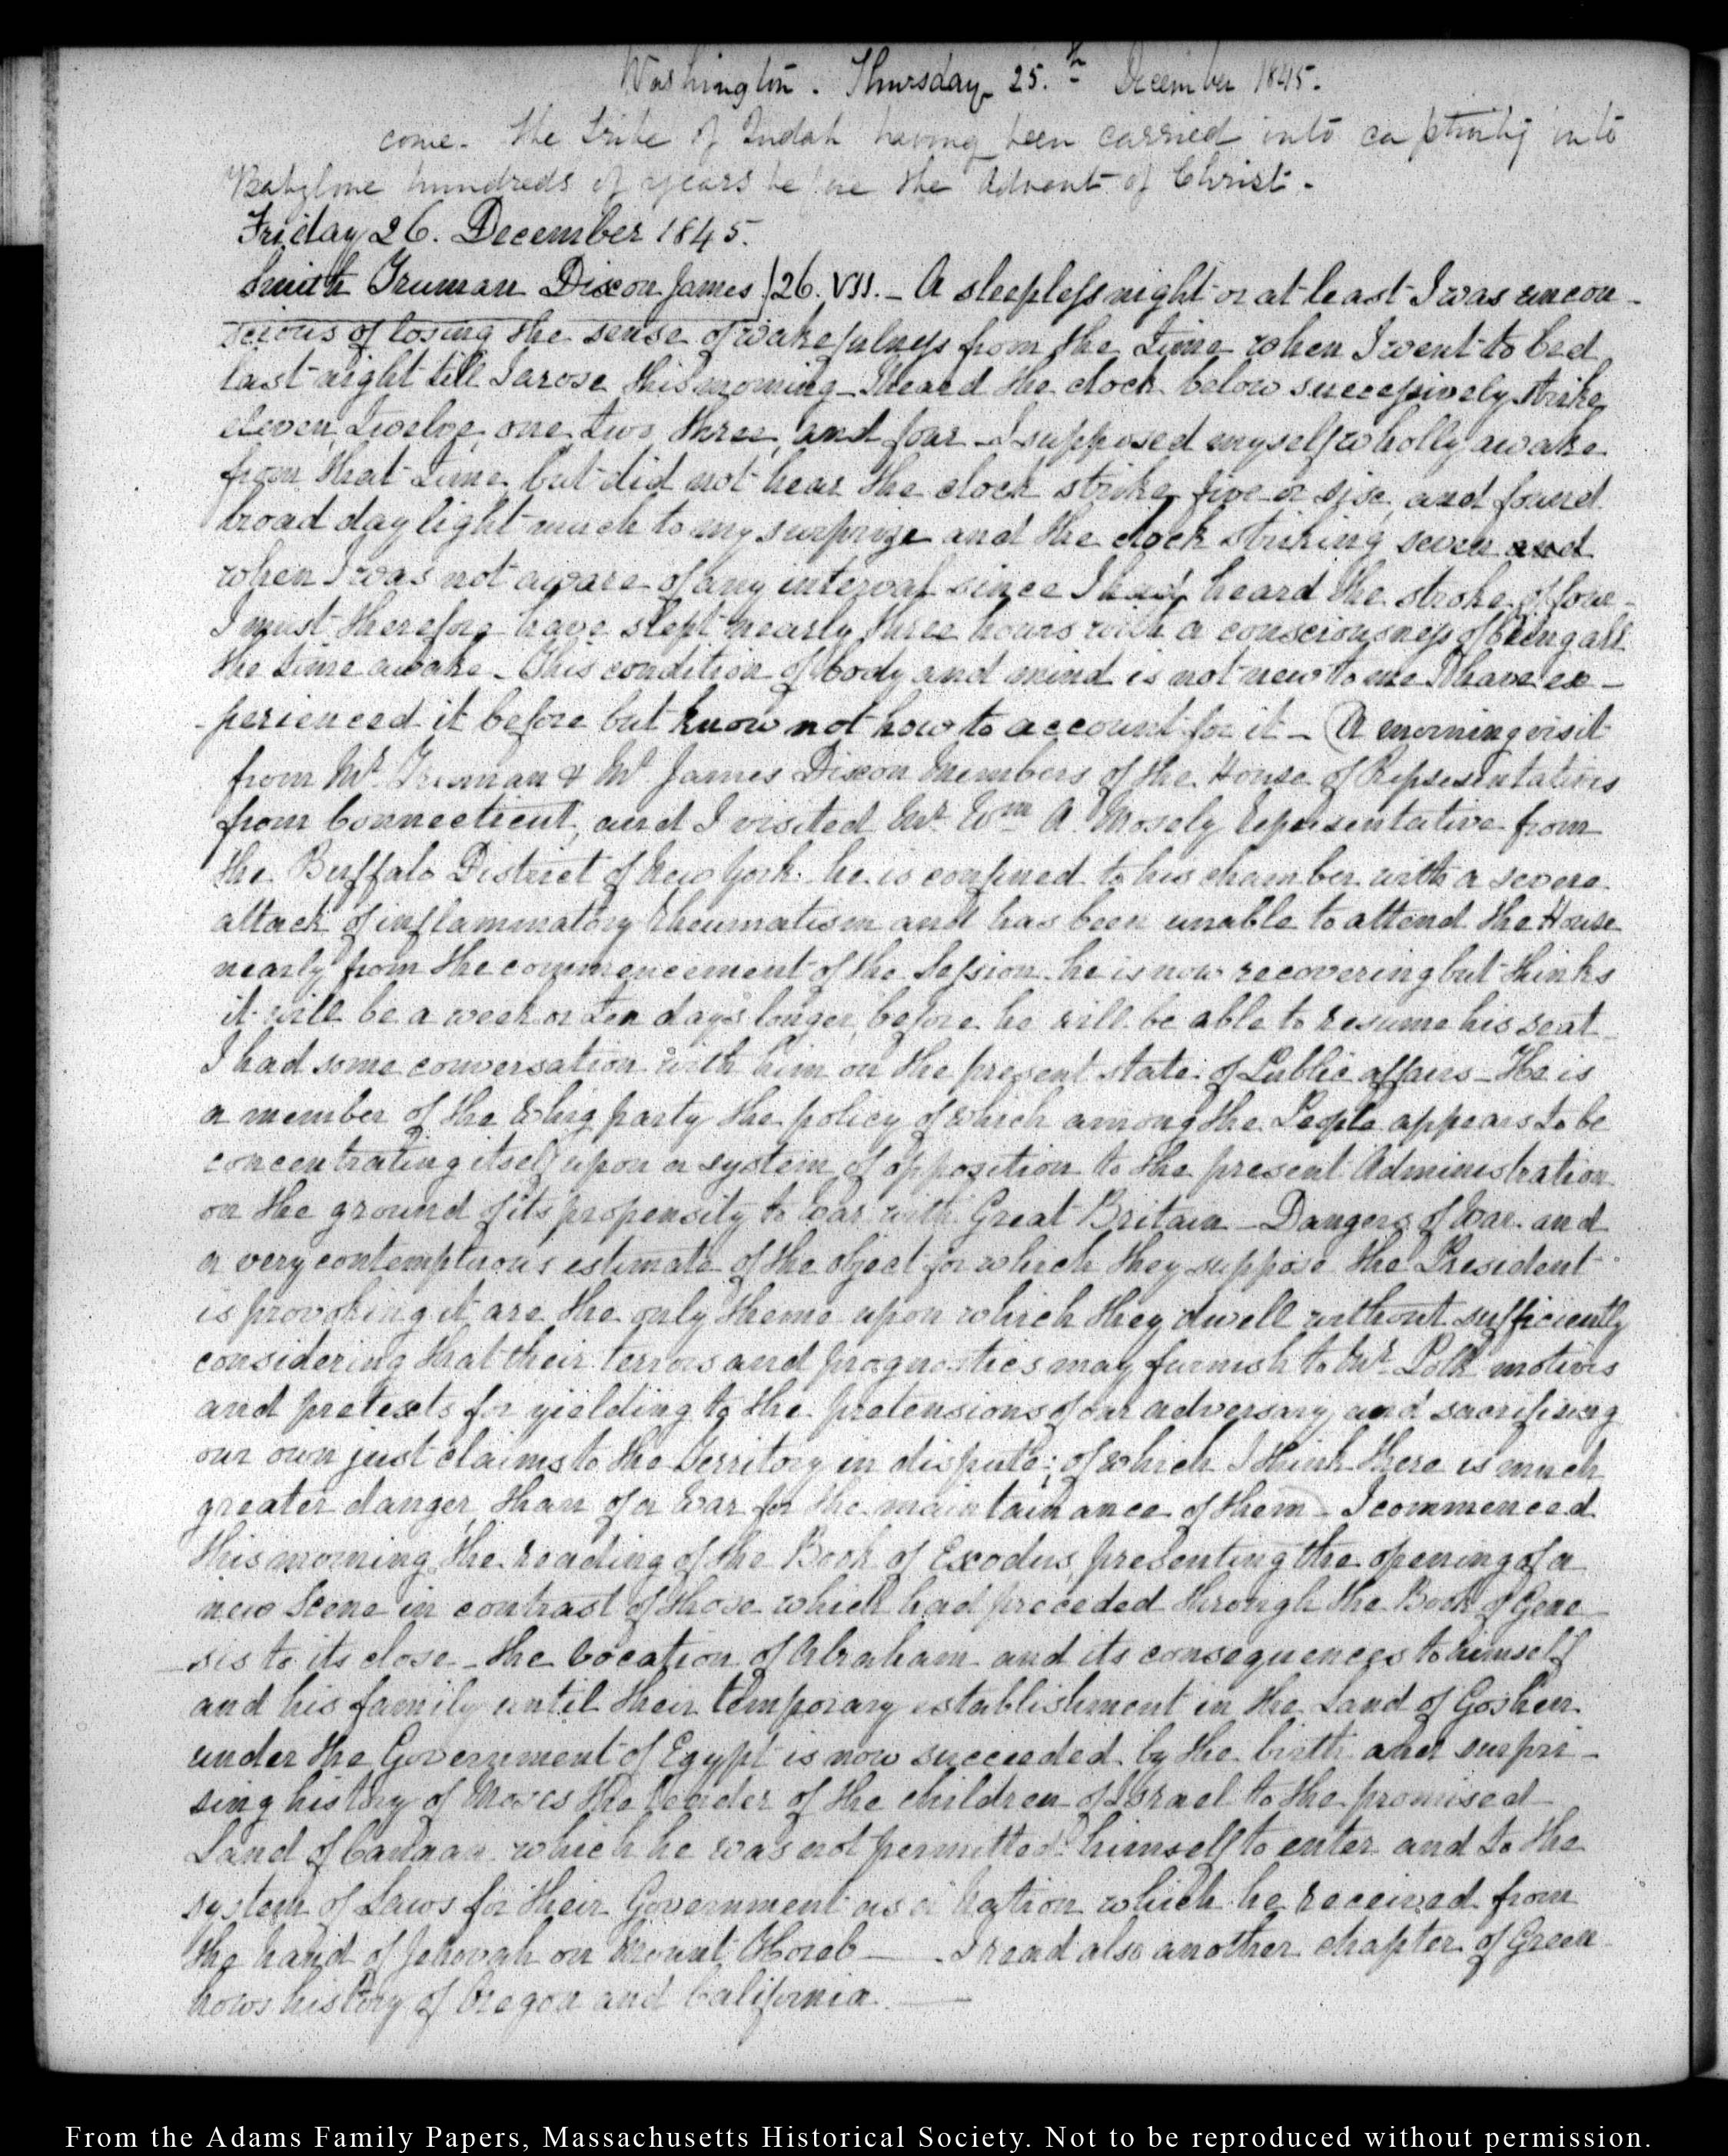 Washington. Thursday 25.th December 1845.
come. The tribe of Judah having been carried into captivity into
Babylone hundreds of years before the Advent of Christ.
Friday 26. December 1845.
Smith Truman Dixon James 26. VII. – A sleepless night or at least I was uncon-
scious of losing the sense of wakefulness from the time when I went to bed
last night till I arose this morning – I heard the clock below successively strike
eleven, twelve, one two three, and four – I supposed myself wholly awake
from that time, but did not hear the clock strike five or six, and found
broad day light much to my surprize and the clock striking seven and
when I was not aware of any interval since I had heard the stroke of four –
I must therefore have slept nearly three hours with a consciousness of being all
the time awake – This condition of body and mind is not new to me I have ex-
perienced it before but know not how to account for it – A morning visit
from Mr. Truman & Mr. James Dixon Members of the House of Representatives
from Connecticut, and I visited Mr. Wm A. Mosely Representative from
the Buffalo District of New York. he is confined to his chamber with a severe
attack of inflammatory rheumatism and has been unable to attend the House
nearly from the commencement of the Session. he is now recovering but thinks
it will be a week or ten days longer, before he will be able to resume his seat
I had some conversation with him on the present state of Public affairs – He is
a member of the Whig party the policy of which among the People appears to be
concentrating itself upon a system of opposition to the present Administration
on the ground of its propensity to War with Great Britain – Dangers of War and
a very contemptuous estimate of the object for which they suppose the President
is provoking it are the only theme upon which they dwell without sufficiently
considering that their terrors and prognostics may furnish to Mr. Polk motives
and pretexts for yielding to the pretensions of our adversary and sacrificing
our own just claims to the Territory in dispute; of which I think there is much
greater danger, than of a War for the maintainance of them – I commenced
this morning the reading of the Book of Exodus, presenting the opening of a
new Scene in contrast of those which had preceded through the Book of Gene-
sis to its close – the Vocation of Abraham and its consequences to himself
and his family until their temporary establishment in the Land of Goshen
under the Government of Egypt is now succeeded by the birth and surpri-
sing history of Moses the leader of the children of Israel to the promised
Land of Canaan which he was not permitted himself to enter and to the
system of Laws for their Government as a Nation which he received from
the hand of Jehovah on Mount Horeb – I read also another chapter of Green-
hows history of Oregon and California. –
From the Adams Family Papers, Massachusetts Historical Society. Not to be reproduced without permission.